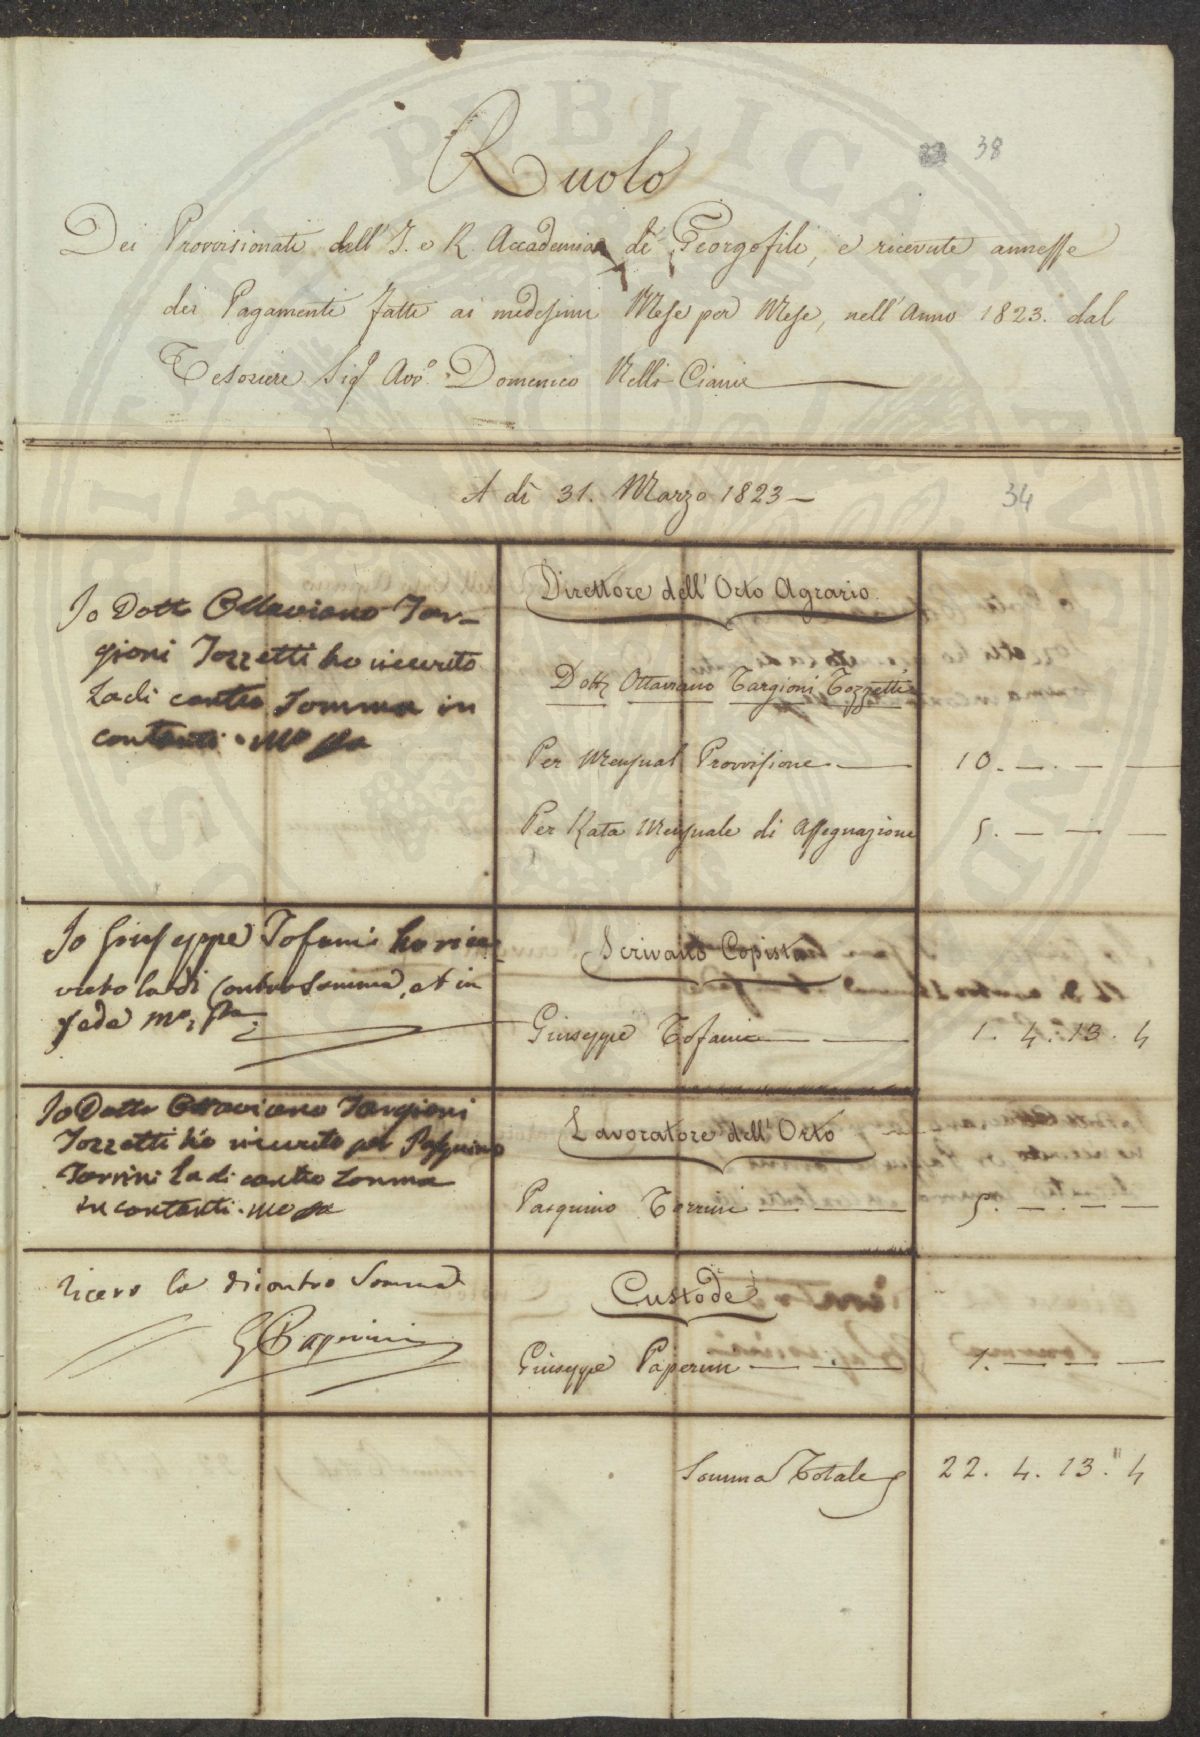 38
Ruolo
Dei Provvisionati dell' I. e R. Accademia de' Georgofili, e ricevute annesse
dei Pagamenti fatti ai medesimi Mese per Mese, nell' Anno 1823. dal
Tesoriere Sig.r Avv.o Domenico Nelli Ciani
A dì 31. Marzo 1823 —
34
Io Dott. Ottaviano Tar-
gioni Tozzetti ho ricevuto
la di contro somma in
contanti. Mo pa
Direttore dell' Orto Agrario.
Dott. Ottaviano Targioni Tozzetti
Per Mensual Provvisione — 10. — . — —
Per Rata Mensuale di Assegnazione 5. — — —
Io Giuseppe Tofani ho rice
vuto la di Contro Somma, et in
fede Mo, Pa
Scrivano Copista
Giuseppe Tofani — — 1. 4. 13. 4
Io Dotto Ottaviano Targioni
Tozzetti ho ricevuto per Pasquino
Torrini la di contro somma
in contanti. Mo pa
Lavoratore dell' Orto
Pasquino Torrini — — 5. — . — —
Ricevo la dicontro Somma
G Paperini
Custode
Giuseppe Paperini — — 1. — — —
Somma Totale 22. 4. 13. " 4